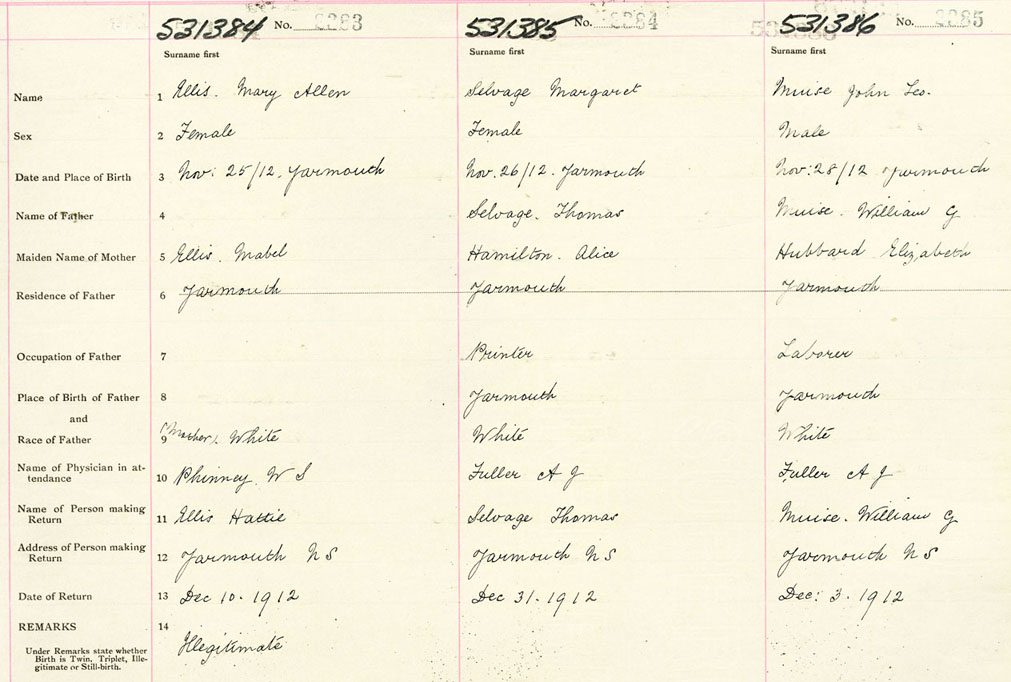 531384 No. 2283 531385 No. 2284 531386 No. 2285
Surname first Surname first Surname first
Name 1 Ellis. Mary Allen Selvage Margaret Muise John Leo.
Sex 2 Female Female Male
Date and Place of Birth 3 Nov: 25/12. Yarmouth Nov. 26/12. Yarmouth Nov: 28/12 Yarmouth
Name of Father 4 Selvage. Thomas Muise. William G
Maiden Name of Mother 5 Ellis. Mabel Hamilton. Alice Hubbard Elizabeth
Residence of Father 6 Yarmouth Yarmouth Yarmouth
Occupation of Father 7 Printer Laborer
Place of Birth of Father 8 Yarmouth Yarmouth
and
Race of Father 9 (Mother). White White White
Name of Physician in at-
tendance 10 Phinney W S Fuller A J Fuller A J
Name of Person making
Return 11 Ellis Hattie Selvage Thomas Muise. William G
Address of Person making
Return 12 Yarmouth N S Yarmouth N S Yarmouth N S
Date of Return 13 Dec 10. 1912 Dec 31. 1912 Dec: 3. 1912
REMARKS 14
Illegitimate
Under Remarks state whether
Birth is Twin, Triplet, Ille-
gitimate or Still-birth.